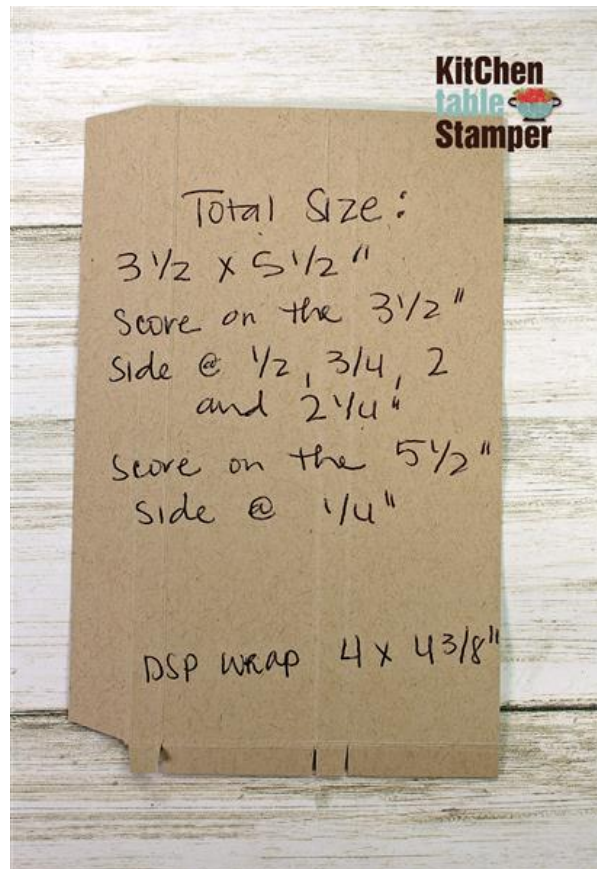 KitChen
table
Stamper
Total Size:
3 1/2 x 5 1/2"
Score on the 3 1/2"
side @ 1/2, 3/4, 2
and 2 1/4"
Score on the 5 1/2"
side @ 1/4"
DSP WRAP 4 x 4 3/8"